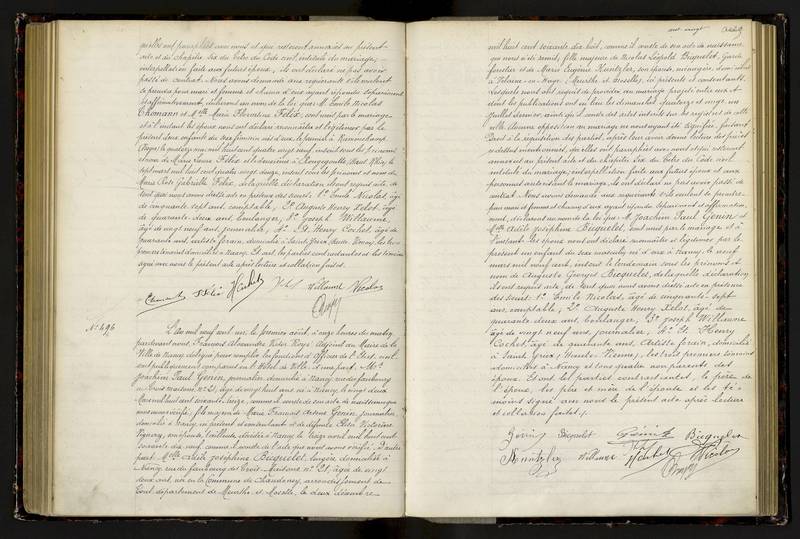 qu'elles ont paraphées avec nous et qui resteront annexées au présent
acte et du chapitre six du titre du Code civil, intitulé du mariage,
interpellation faite aux futurs époux, ils ont déclaré ne pas avoir
passé de contrat. Nous avons demandé aux requérants s'ils veulent
se prendre pour mari et femme et chacun d'eux ayant répondu séparément
et affirmativement, déclarons au nom de la loi que M. Emile Nicolas
Chomann et Melle Marie Florentine Félix, sont unis par le mariage
et à l'instant les époux nous ont déclaré reconnaître et légitimer par le
présent deux enfants du sexe féminin nés d'eux, le premier à
mai mil huit cent quatre vingt neuf, inscrit sous les prénoms
et nom de Marie Louise Félix et le deuxième à Rougegoutte, Haut Rhin, le
sept mars mil huit cent quatre vingt douze, inscrit sous les prénoms et nom de
Marie Rose Gabrielle Félix, de laquelle déclaration ils ont requis acte, de
tout quoi nous avons dressé acte en présence des sieurs: 1° Emile Nicolas, âgé
de cinquante sept ans, comptable, 2° Auguste Henry Xelot, âgé
de quarante deux ans, boulanger, 3° Joseph Willaume,
âgé de vingt neuf ans, journalier, 4° St. Henry Cochet, âgé de
quarante ans, artiste forain, domicilié à Saint Yrieix, Haute Vienne, les trois
premiers témoins domiciliés à Nancy. Et ont les parties contractantes et les témoins
signé avec nous le présent acte après lecture et collation faites.
Chomann Félix HCochet Xelot Willaume Nicolas
N° 496
L'an mil neuf cent un, le premier août, à onze heures du matin,
pardevant nous, François Alexandre Adjoint au Maire de la
Ville de Nancy, délégué pour remplir les fonctions d'Officier de l'État civil
ont publiquement comparu en l'Hôtel de Ville: d'une part, Mr.
Joachim Paul Genin, journalier, domicilié à Nancy, rue du faubourg
des Trois Maisons n° 21, âgé de vingt huit ans, né à Nancy, le vingt deux
Mars mil huit cent soixante treize, comme il conste de son acte de naissance que
nous avons vérifié, fils majeur de Marie François Arsène Genin, journalier,
domicilié à Nancy, ici présent et consentant et de défunte Rita Victorine
Vignerey, son épouse, tailleuse, décédée à Nancy le treize avril mil huit cent
soixante dix neuf, comme il conste de l'acte que nous avons vérifié; d'autre
part, Melle Adèle Joséphine Bicquelet, lingère, domiciliée à
Nancy, rue du faubourg des Trois Maisons n° 21, âgée de vingt
deux ans, née en la Commune de Chaudeney, arrondissement de
Toul, département de Meurthe et Moselle, le deux décembre
mil huit cent soixante dix huit, comme il conste de son acte de naissance,
qui nous a été remis, fille majeure de Nicolas Léopold Bicquelet, Garde
forestier et de Marie Eugénie Kuntzler, son épouse, ménagère, domiciliés
à Velaine-en-Haye, (Meurthe et Moselle), ici présents et consentants.
Lesquels nous ont requis de procéder au mariage projeté entre eux et
dont les publications ont eu lieu les dimanches quatorze et vingt un
juillet dernier, ainsi qu'il conste des actes inscrits sur les registres de cette
ville. Aucune opposition au mariage ne nous ayant été signifiée, faisant
droit à la réquisition des parties, après leur avoir donné lecture des pièces
ci-dessus mentionnées, qu'elles ont paraphées avec nous et qui resteront
annexées au présent acte et du chapitre six du titre du Code civil
intitulé du mariage; interpellation faite aux futurs époux et aux
personnes autorisant le mariage, ils ont déclaré ne pas avoir passé de
contrat. Nous avons demandé aux requérants s'ils veulent se prendre
pour mari et femme et chacun d'eux ayant répondu séparément et affirmative-
ment, déclarons au nom de la loi que M. Joachim Paul Genin et
Melle Adèle Joséphine Bicquelet, sont unis par le mariage et à
l'instant les époux nous ont déclaré reconnaître et légitimer par le
présent un enfant du sexe masculin, né d'eux à Nancy, le neuf
mars mil neuf cent, inscrit le lendemain sous les prénoms et
nom de Auguste Georges Bicquelet, de laquelle déclaration
ils ont requis acte, de tout quoi nous avons dressé acte en présence
des sieurs: 1° Emile Nicolas, âgé de cinquante sept
ans, comptable, 2° Auguste Henry Xelot, âgé de
quarante deux ans, boulanger, 3° Joseph Willaume,
âgé de vingt neuf ans, journalier, 4° St. Henry
Cochet, âgé de quarante ans, Artiste forain, domicilié
à Saint Yrieix (Haute Vienne), les trois premiers témoins
domiciliés à Nancy et tous quatre non parents des
époux. Et ont les parties contractantes, le père de
l'époux, les père et mère de l'épouse et les té-
moins signé avec nous le présent acte après lecture
et collation faites.
Genin Bicquelet Genin Bicquelet
Kuntzler Willaume HCochet Nicolas